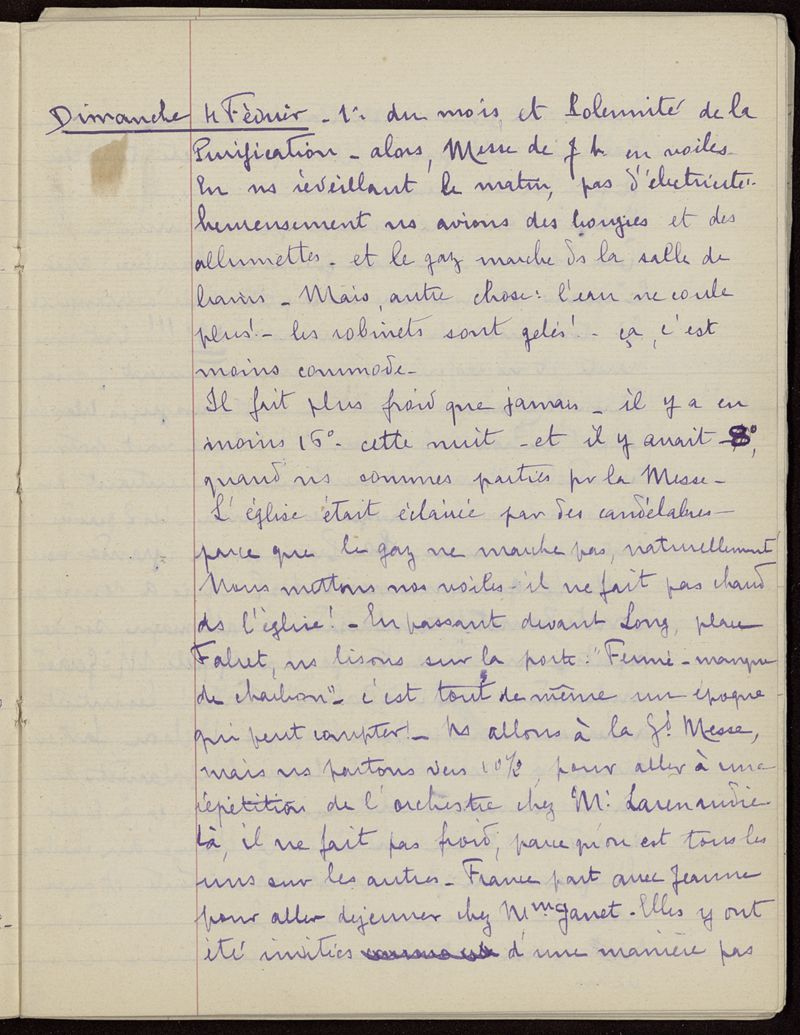 Dimanche 4 Février - 1er du mois, et Solennité de la
Purification - alors, Messe de 7 h en voiles.
En ns réveillant le matin, pas d'électricité.
heureusement ns avions des bougies et des
allumettes. et le gaz marche ds la salle de
bains - Mais, autre chose: l'eau ne coule
plus! - les robinets sont gelés! - ça, c'est
moins commode -
Il fait plus froid que jamais - il y a eu
moins 16° cette nuit - et il y avait - 8°,
quand ns sommes parties pr la Messe -
L'église était éclairée par des candélabres -
parce que le gaz ne marche pas, naturellement
Nous mettons nos voiles - il ne fait pas chaud
ds l'église! - En passant devant Long, place
Falret, ns lisons sur la porte: "Fermé - manque
de charbon" - c'est tout de même un époque
qui peut compter! - Ns allons à la Gd Messe,
mais ns partons vers 10 h 1/2, pour aller à une
répétition de l'orchestre chez Mr Larenaudie
là, il ne fait pas froid, parce qu'on est tous les
uns sur les autres - France part avec Jeanne
pour aller déjeuner chez Mme Janet - Elles y ont
été invitées d'une manière pas